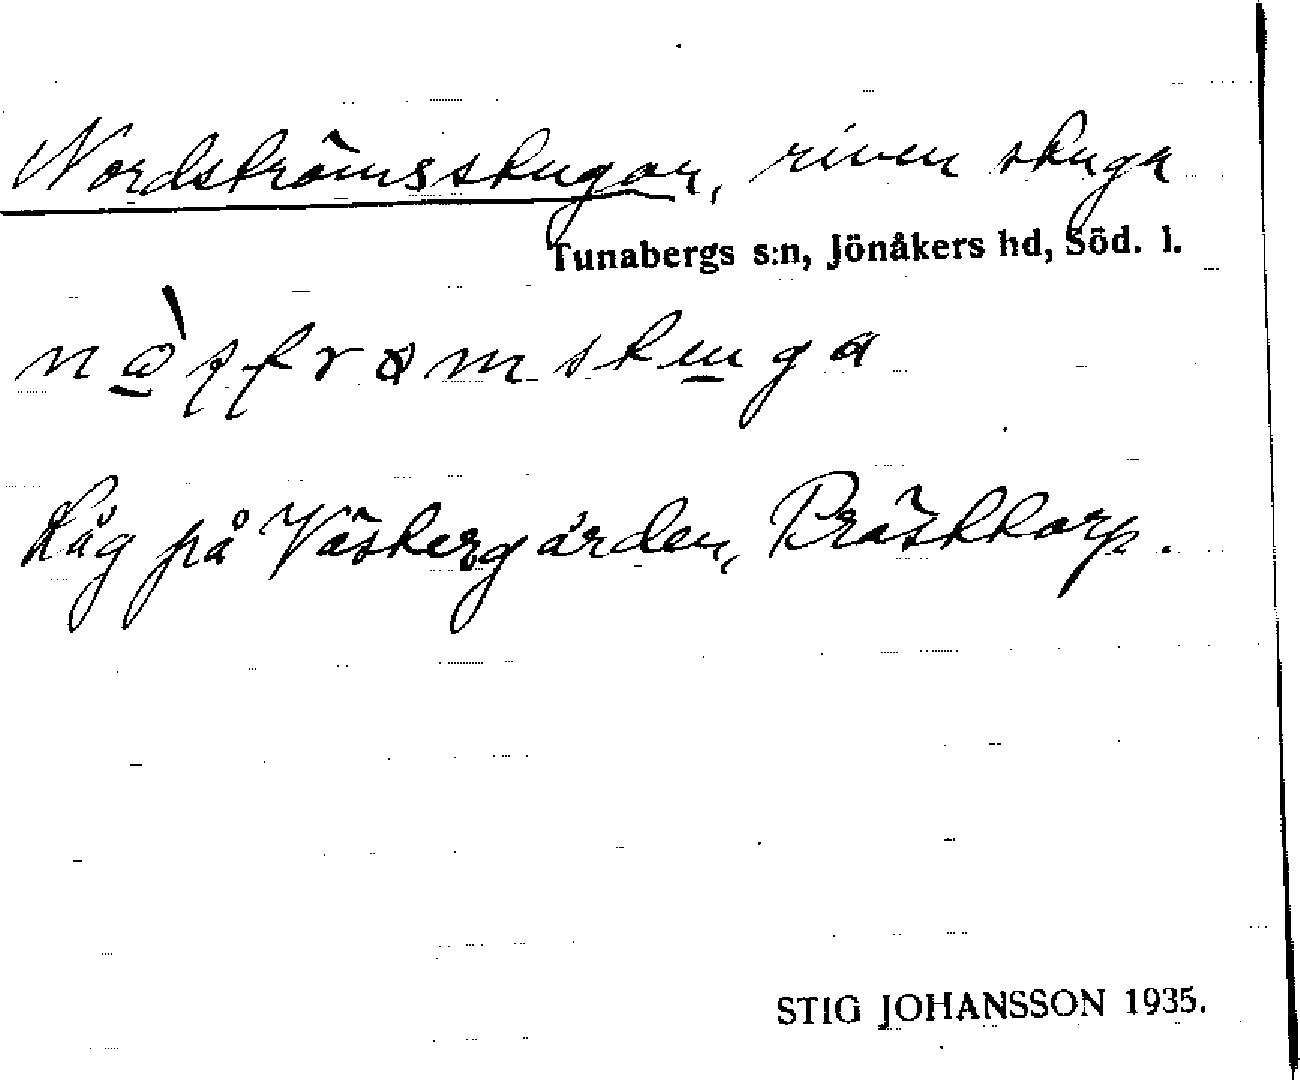 Nordströmsstugan, riven stuga
Tunabergs s:n, Jönåkers hd, Söd. l.
Låg på Västergården, Prästtorp.
STIG JOHANSSON 1935.